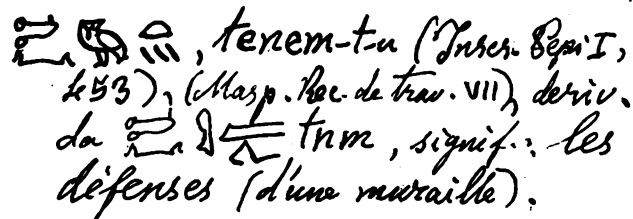 , tenem-t-u (Inscr. Pepi I,
(Masp. Rec. de trav. VII), deriv.
da tnm, signif.: les
défenses (d'une muraille).